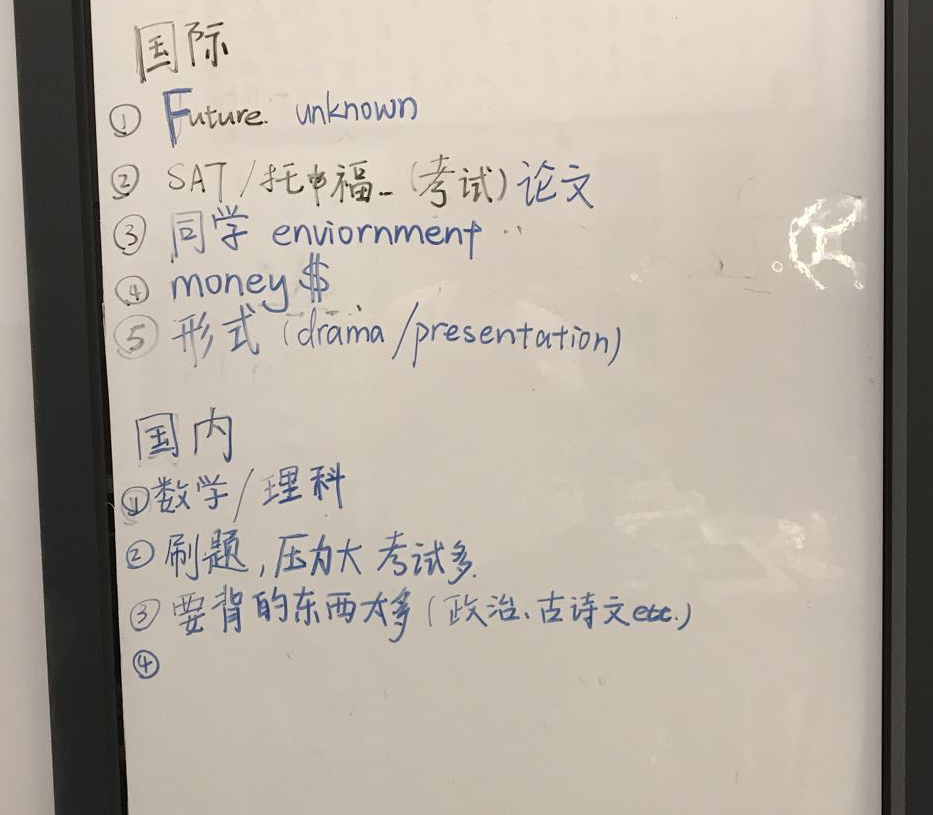 国际
① Future. unknown
② SAT/托福 (考试) 论文
③ 同学 enviornment
④ money $
⑤ 形式 (drama/presentation)
国内
① 数学/理科
② 刷题,压力大 考试多.
③ 要背的东西太多(政治、古诗文etc.)
④